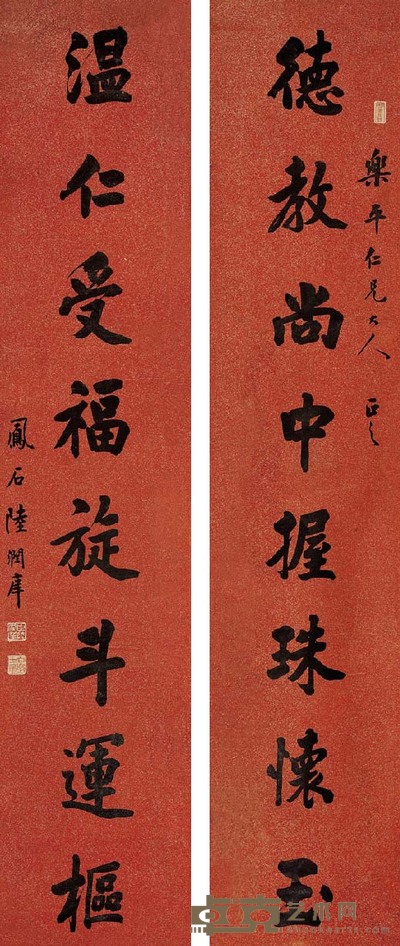 樂平仁兄大人 正之
德教尚中握珠懷玉
温仁受福旋斗運樞
鳳石陸潤庠
艺术网